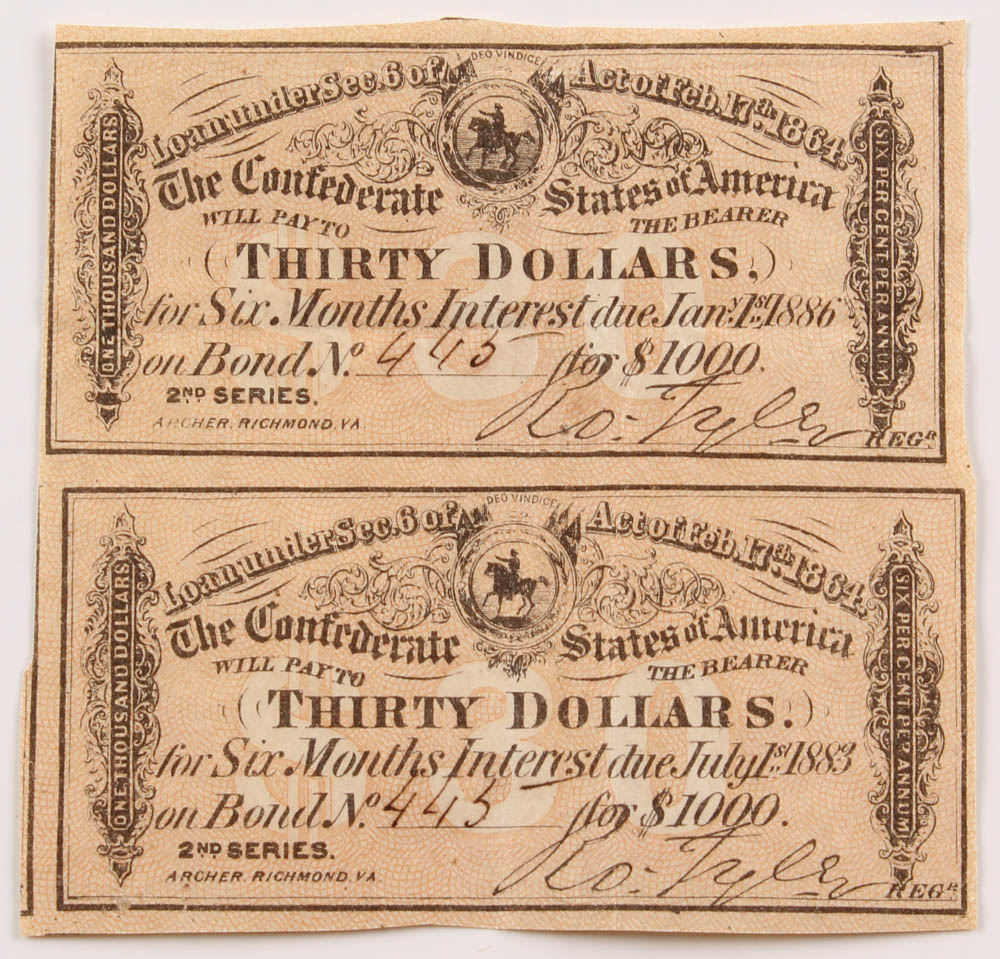 DEO VINDICE
Loan under Sec. 6 of Act of Feb. 17th. 1864.
ONE THOUSAND DOLLARS
SIX PER CENT PER ANNUM
The Confederate States of America
WILL PAY TO THE BEARER
$30
(THIRTY DOLLARS.)
for Six Months Interest due Jany. 1st. 1886
on Bond No. 445 for $1000.
2ND SERIES.
Ro: Tyler
ARCHER, RICHMOND, VA. REGR
DEO VINDICE
Loan under Sec. 6 of Act of Feb. 17th. 1864.
ONE THOUSAND DOLLARS
SIX PER CENT PER ANNUM
The Confederate States of America
WILL PAY TO THE BEARER
$30
(THIRTY DOLLARS.)
for Six Months Interest due July 1st. 1883
on Bond No. 445 for $1000.
2ND SERIES.
Ro: Tyler
ARCHER, RICHMOND, VA. REGR